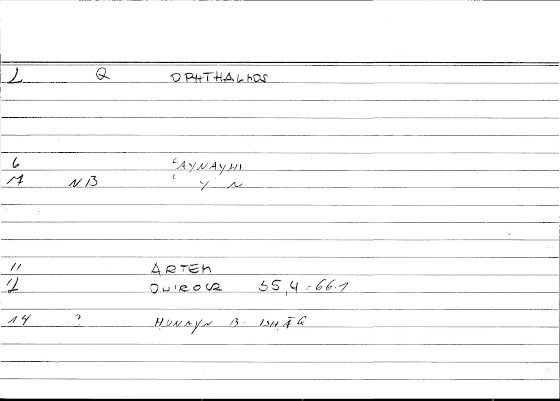 1 Q OPHTHALMOS
6 ʿAYNAYHI
14 NB ʿ Y N
11 ARTEM
12 ONIROCR 55,4 = 66.1
14 ? HUNAYN B. ISHĀQ